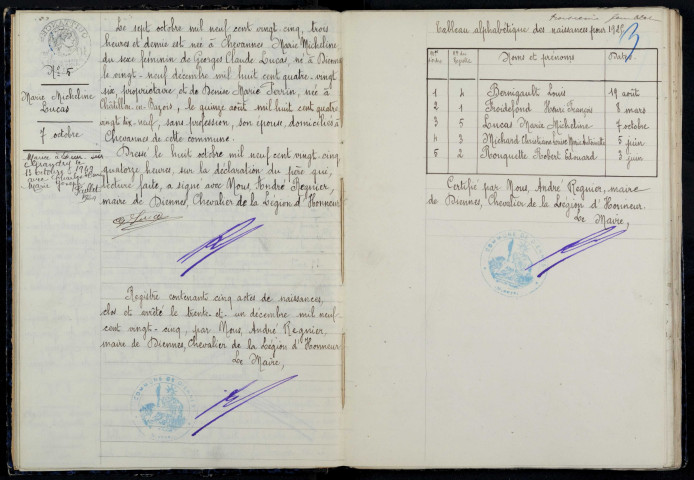 N° 5
Marie Micheline
Lucas
7 octobre
Le sept octobre mil neuf cent vingt cinq, trois
heures et demie est née à Chevannes Marie Micheline
du sexe féminin de Georges Claude Lucas, né à Dienne
le vingt-neuf décembre mil huit cent quatre-vingt
six propriétaire, et de Denise Marie Perrin, née à
Châtillon-en-Bazois, le quinze août mil huit cent quatre
vingt dix neuf, sans profession, son épouse, domiciliés à
Chevannes de cette commune.
Dressé le huit octobre mil neuf cent vingt-cinq,
quatorze heures sur la déclaration du père qui,
lecture faite, a signé avec Nous, André Regnier,
maire de Diennes, Chevalier de la Légion d'Honneur
Registre contenant cinq actes de naissances,
clos et arrêté le trente et un décembre mil neuf
cent vingt-cinq, par Nous, André Regnier,
maire de Diennes, Chevalier de la Légion d'Honneur
Le Maire,
Tableau alphabétique des naissances pour 1925
Noms et prénoms Dates
1 4 Bernigault Louis 19 août
2 1 Froidefond Henri François 8 mars
3 5 Lucas Marie Micheline 7 octobre
4 3 Michard Christiane Louise Marie Antoinette 5 juin
5 2 Rouquette Robert Edouard 3 juin
Certifié par Nous, André Regnier, maire
de Diennes, Chevalier de la Légion d'Honneur.
Le Maire,